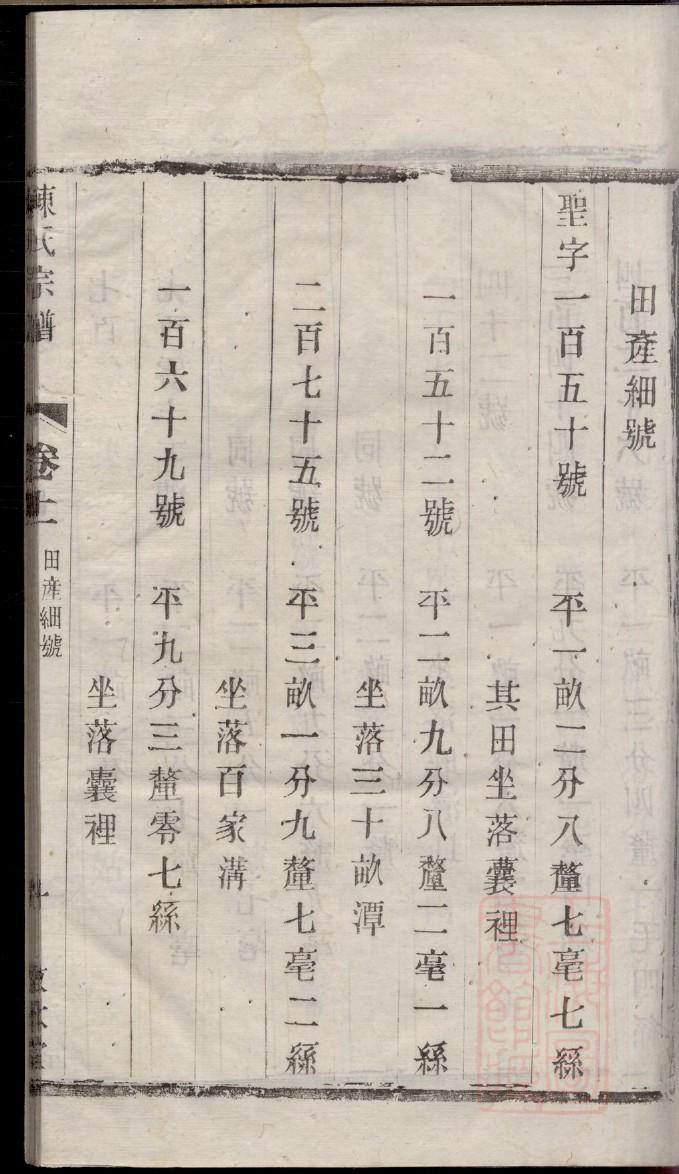 田產細號
聖字一百五十號　平一畝二分八釐七毫七絲
其田坐落囊裡
一百五十二號　平二畝九分八釐二毫一絲
坐落三十畝潭
二百七十五號　平三畝一分九釐七毫二絲
坐落百家溝
一百六十九號　平九分三釐零七絲
坐落囊裡
陳氏宗譜　卷十一　田產細號